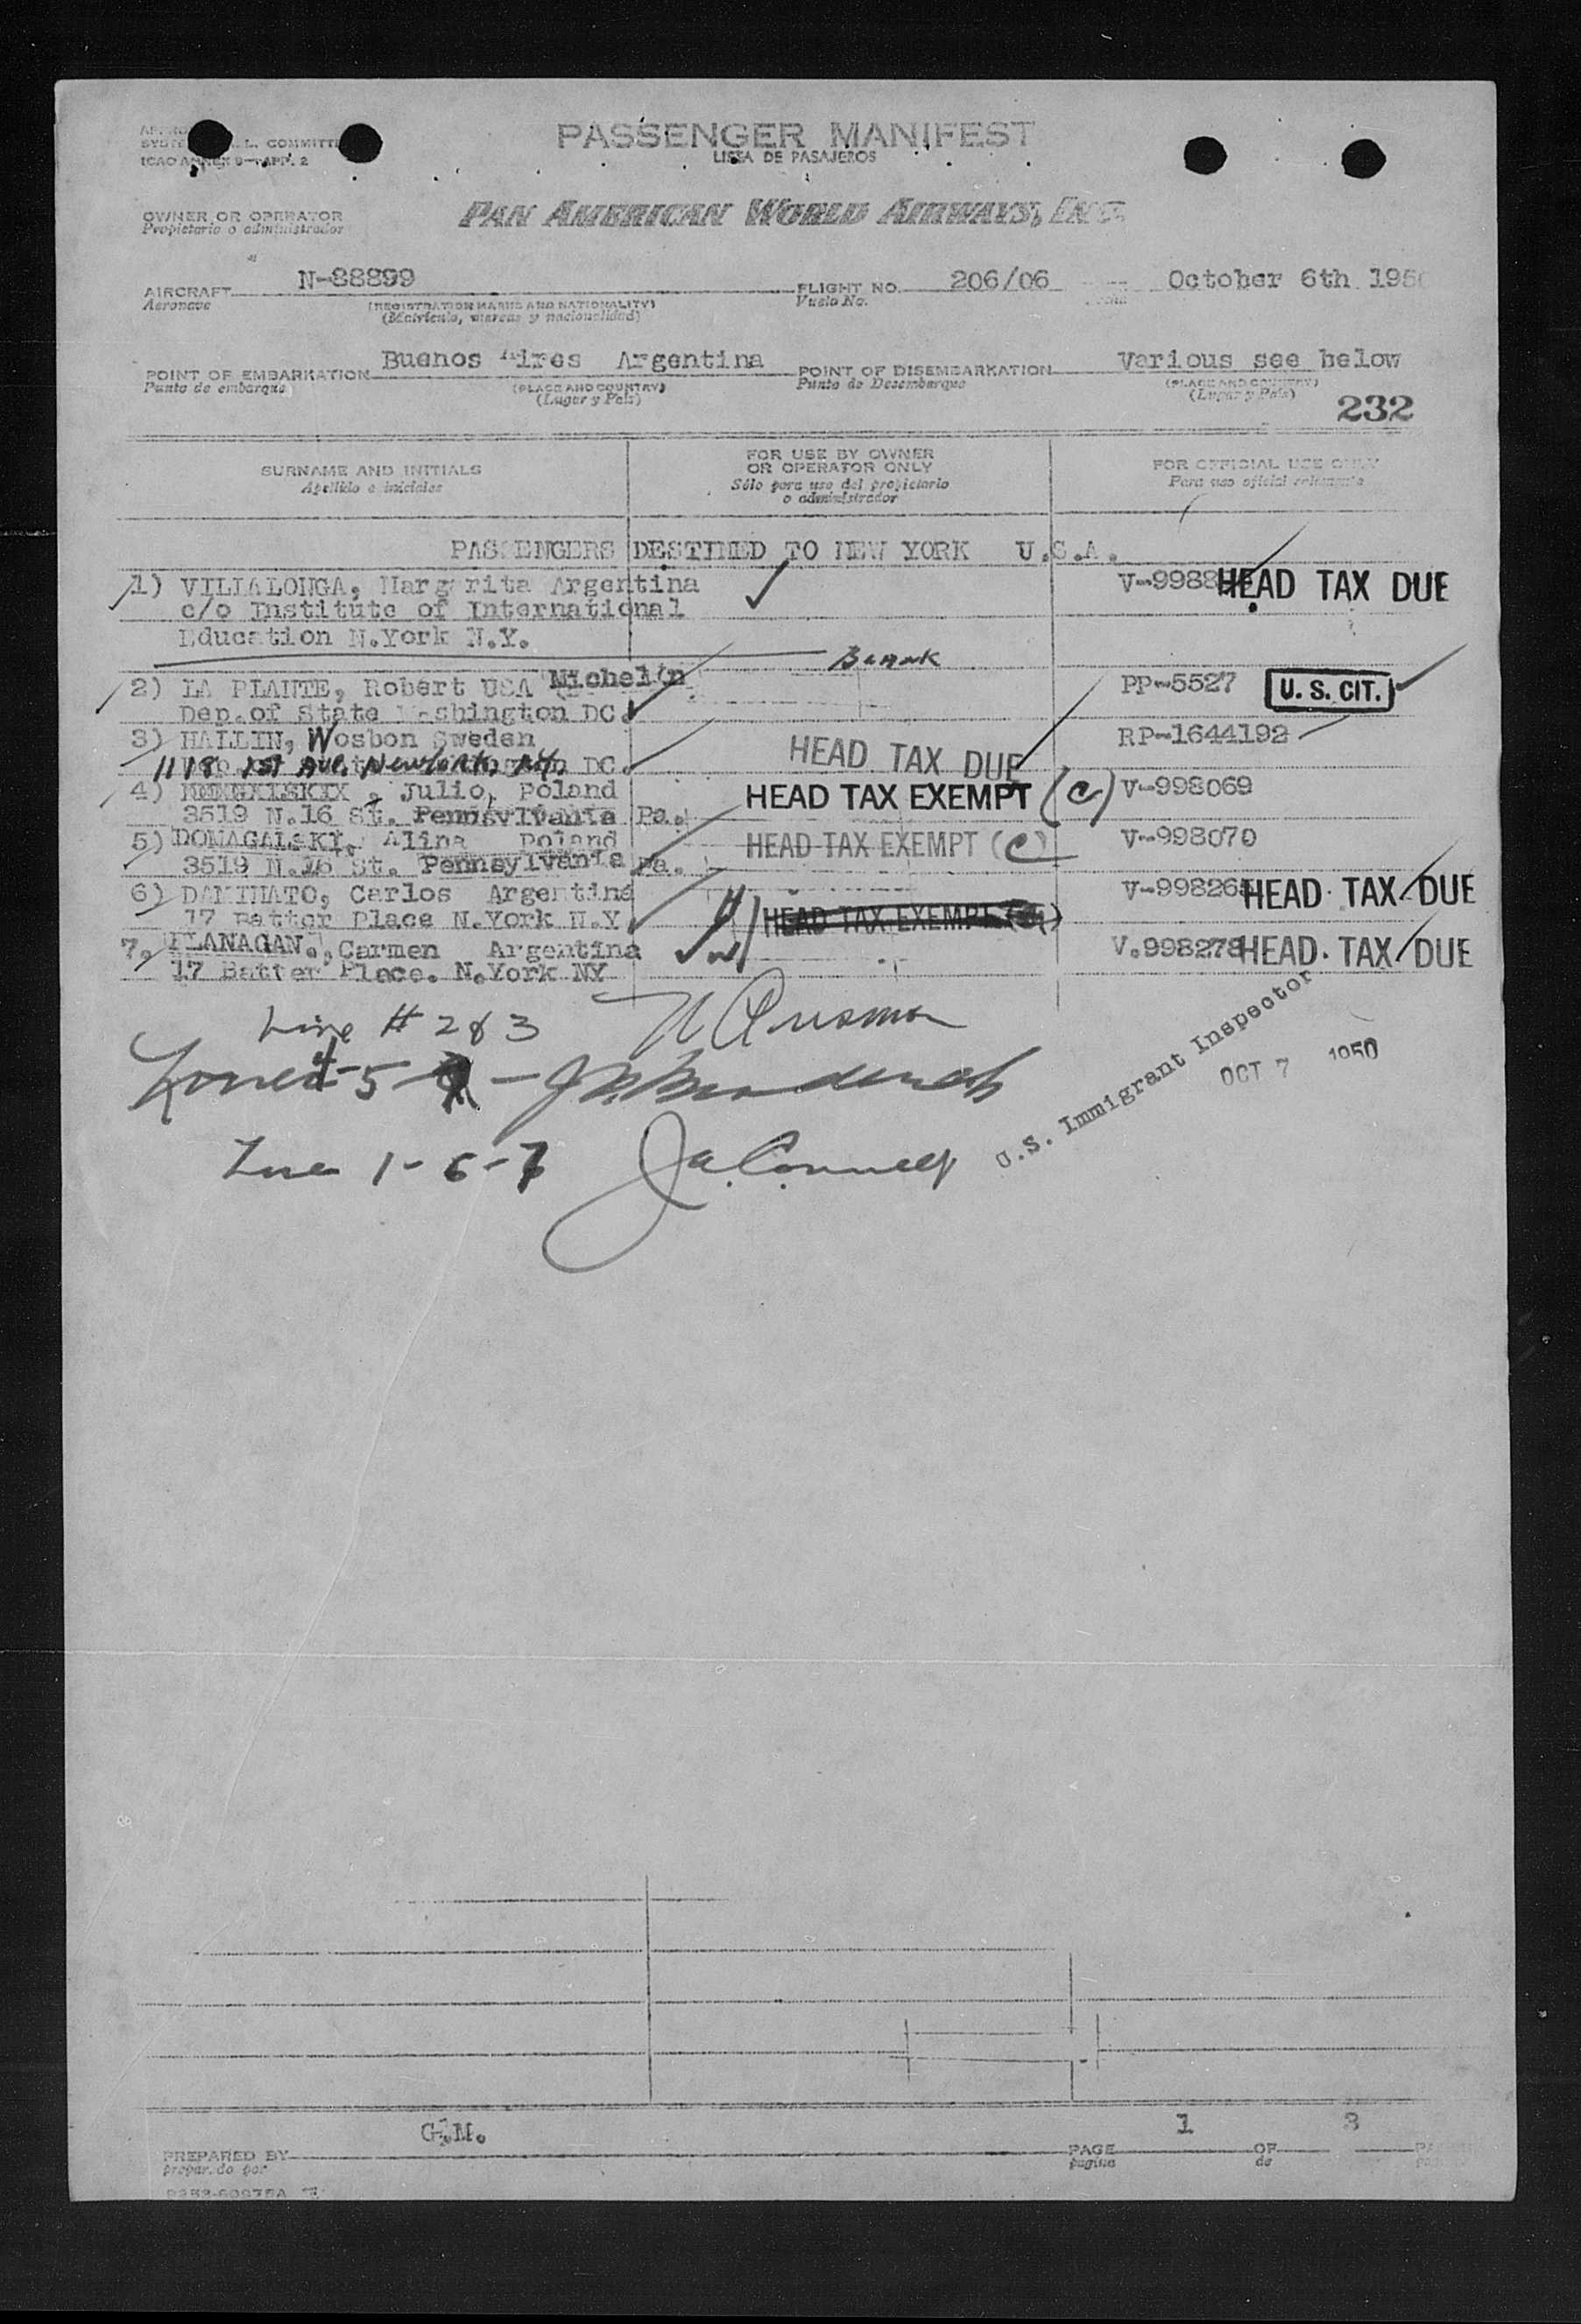 PASSENGER MANIFEST
LISTA DE PASAJEROS
ICAO ANNEX 9—APP. 2
OWNER OR OPERATOR
Propietario o administrador
PAN AMERICAN WORLD AIRWAYS, INC.
AIRCRAFT N-88899 FLIGHT NO. 206/06 October 6th 1950
Aeronave (REGISTRATION MARKS AND NATIONALITY) Vuelo No.
(Matrícula, marcas y nacionalidad)
POINT OF EMBARKATION Buenos Aires Argentina POINT OF DISEMBARKATION Various see below
Punto de embarque (PLACE AND COUNTRY) Punto de Desembarque (PLACE AND COUNTRY)
(Lugar y País) (Lugar y País)
232
SURNAME AND INITIALS FOR USE BY OWNER OR OPERATOR ONLY FOR OFFICIAL USE ONLY
Apellido e iniciales Sólo para uso del propietario o administrador Para uso oficial
PASSENGERS DESTINED TO NEW YORK U.S.A.
1) VILLALONGA, Margarita Argentina V-9988 HEAD TAX DUE
c/o Institute of International
Education N.York N.Y.
2) LA PLANTE, Robert USA Michelin PP-5527 U.S. CIT.
Dep.of State Washington DC.
3) HALLIN, Wosbon Sweden HEAD TAX DUE RP-1644192
1118 1st Ave. New York, N.Y. DC.
4) , Julio, Poland HEAD TAX EXEMPT (C) V-998069
3519 N.16 St. Pennsylvania Pa.
5) DOMAGALSKI, Alina Poland HEAD TAX EXEMPT (C) V-998070
3519 N.16 St. Pennsylvania Pa.
6) Carlos Argentina V-99826 HEAD TAX DUE
17 Batter Place N.York N.Y. HEAD TAX EXEMPT
7. FLANAGAN., Carmen Argentina V.998278 HEAD TAX DUE
17 Batter Place. N.York NY
Line # 2 & 3
4-5
U.S. Immigrant Inspector
OCT 7 1950
Line 1-6-7
G.M. 1 3
PREPARED BY PAGE OF
pagina de